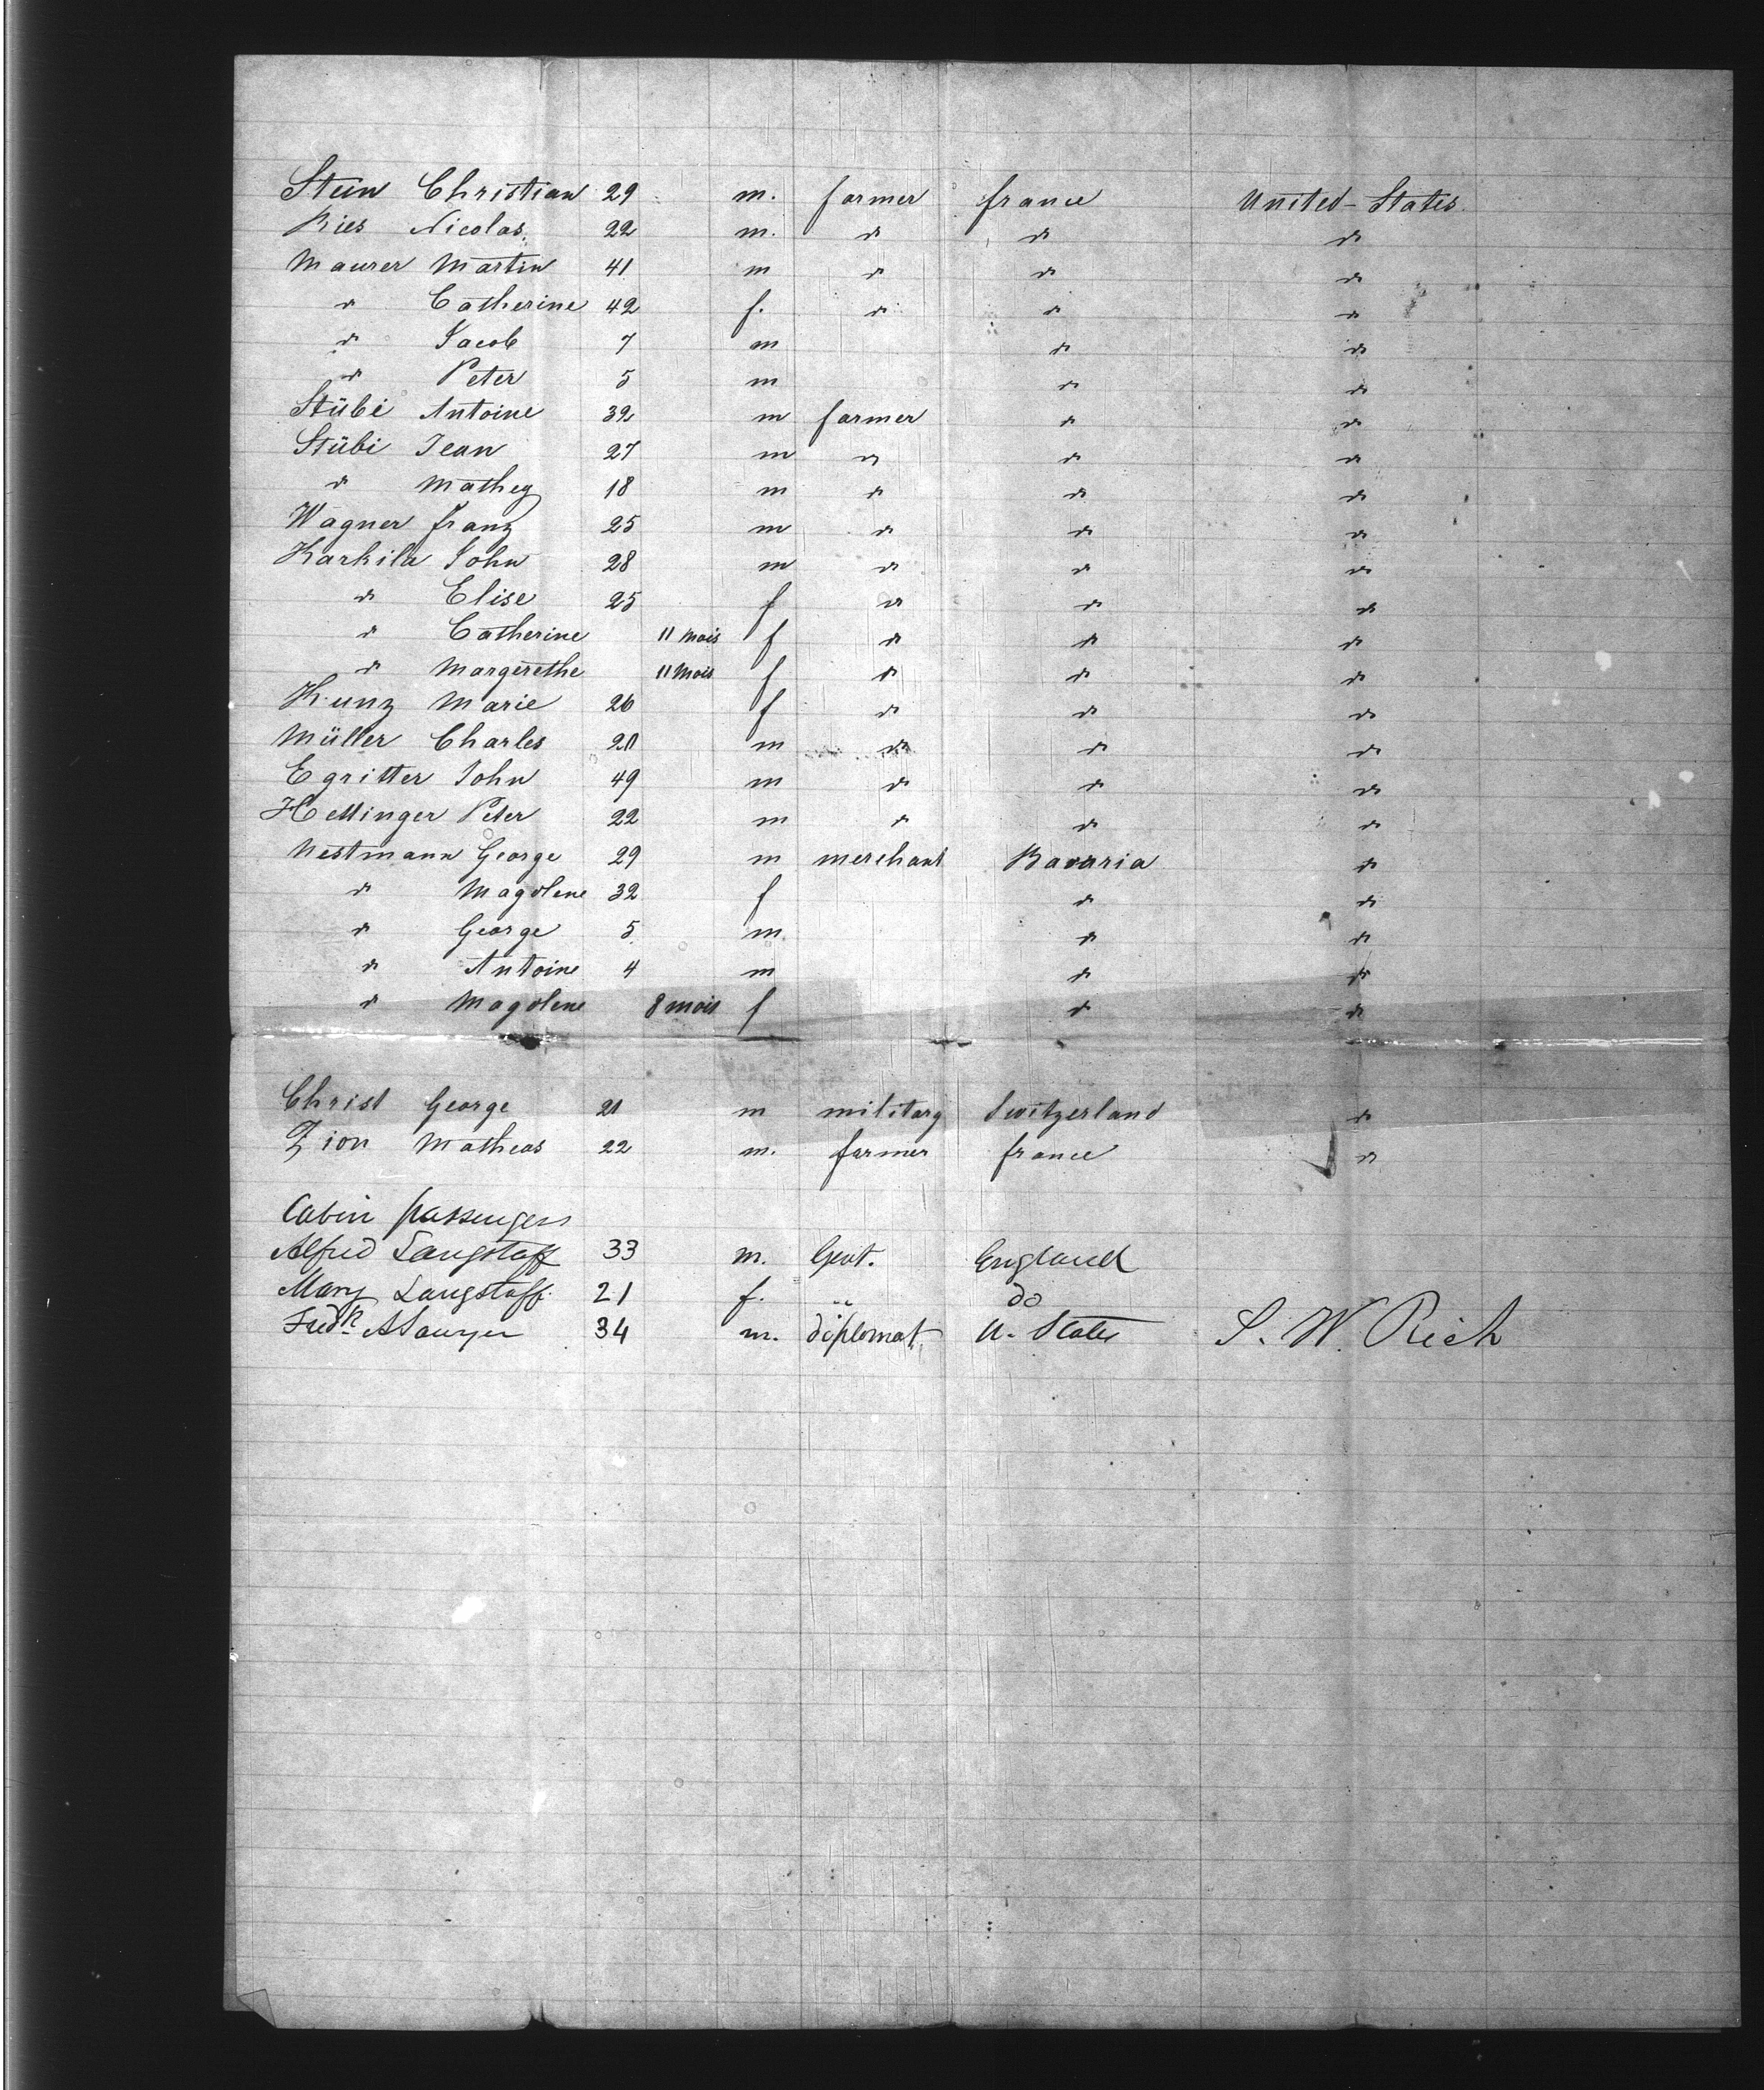 Stein Christian 29 m. farmer france United-States.
Ries Nicolas. 22 m. " " "
Maurer Martin 41 m " " "
" Catherine 42 f. " " "
" Jacob 7 m " "
" Peter 5 m " "
Stübi Antoine 32 m farmer " "
Stübi Jean 27 m " " "
" Mathey 18 m " " "
Wagner franz 25 m " " "
Karkila John 28 m " " "
" Elise 25 f " " "
" Catherine 11 mois f " " "
" Margerethe 11 mois f " " "
Kunz Marie 26 f " " "
Müller Charles 20 m " " "
Egritter John 49 m " " "
Hettinger Peter 22 m " " "
Westmann George 29 m merchant Bavaria "
" Magdlene 32 f " "
" George 5 m " "
" Antoine 4 m " "
" Magdlene 8 mois f " "
Christ George 21 m military Switzerland "
Zion Matheas 22 m. farmer france "
Cabin passengers
Alfred Langstaff 33 m. Gent. England
Mary Langstaff 21 f. " do
Fredk A Sawyer 34 m. diplomat U. States S. W. Rich